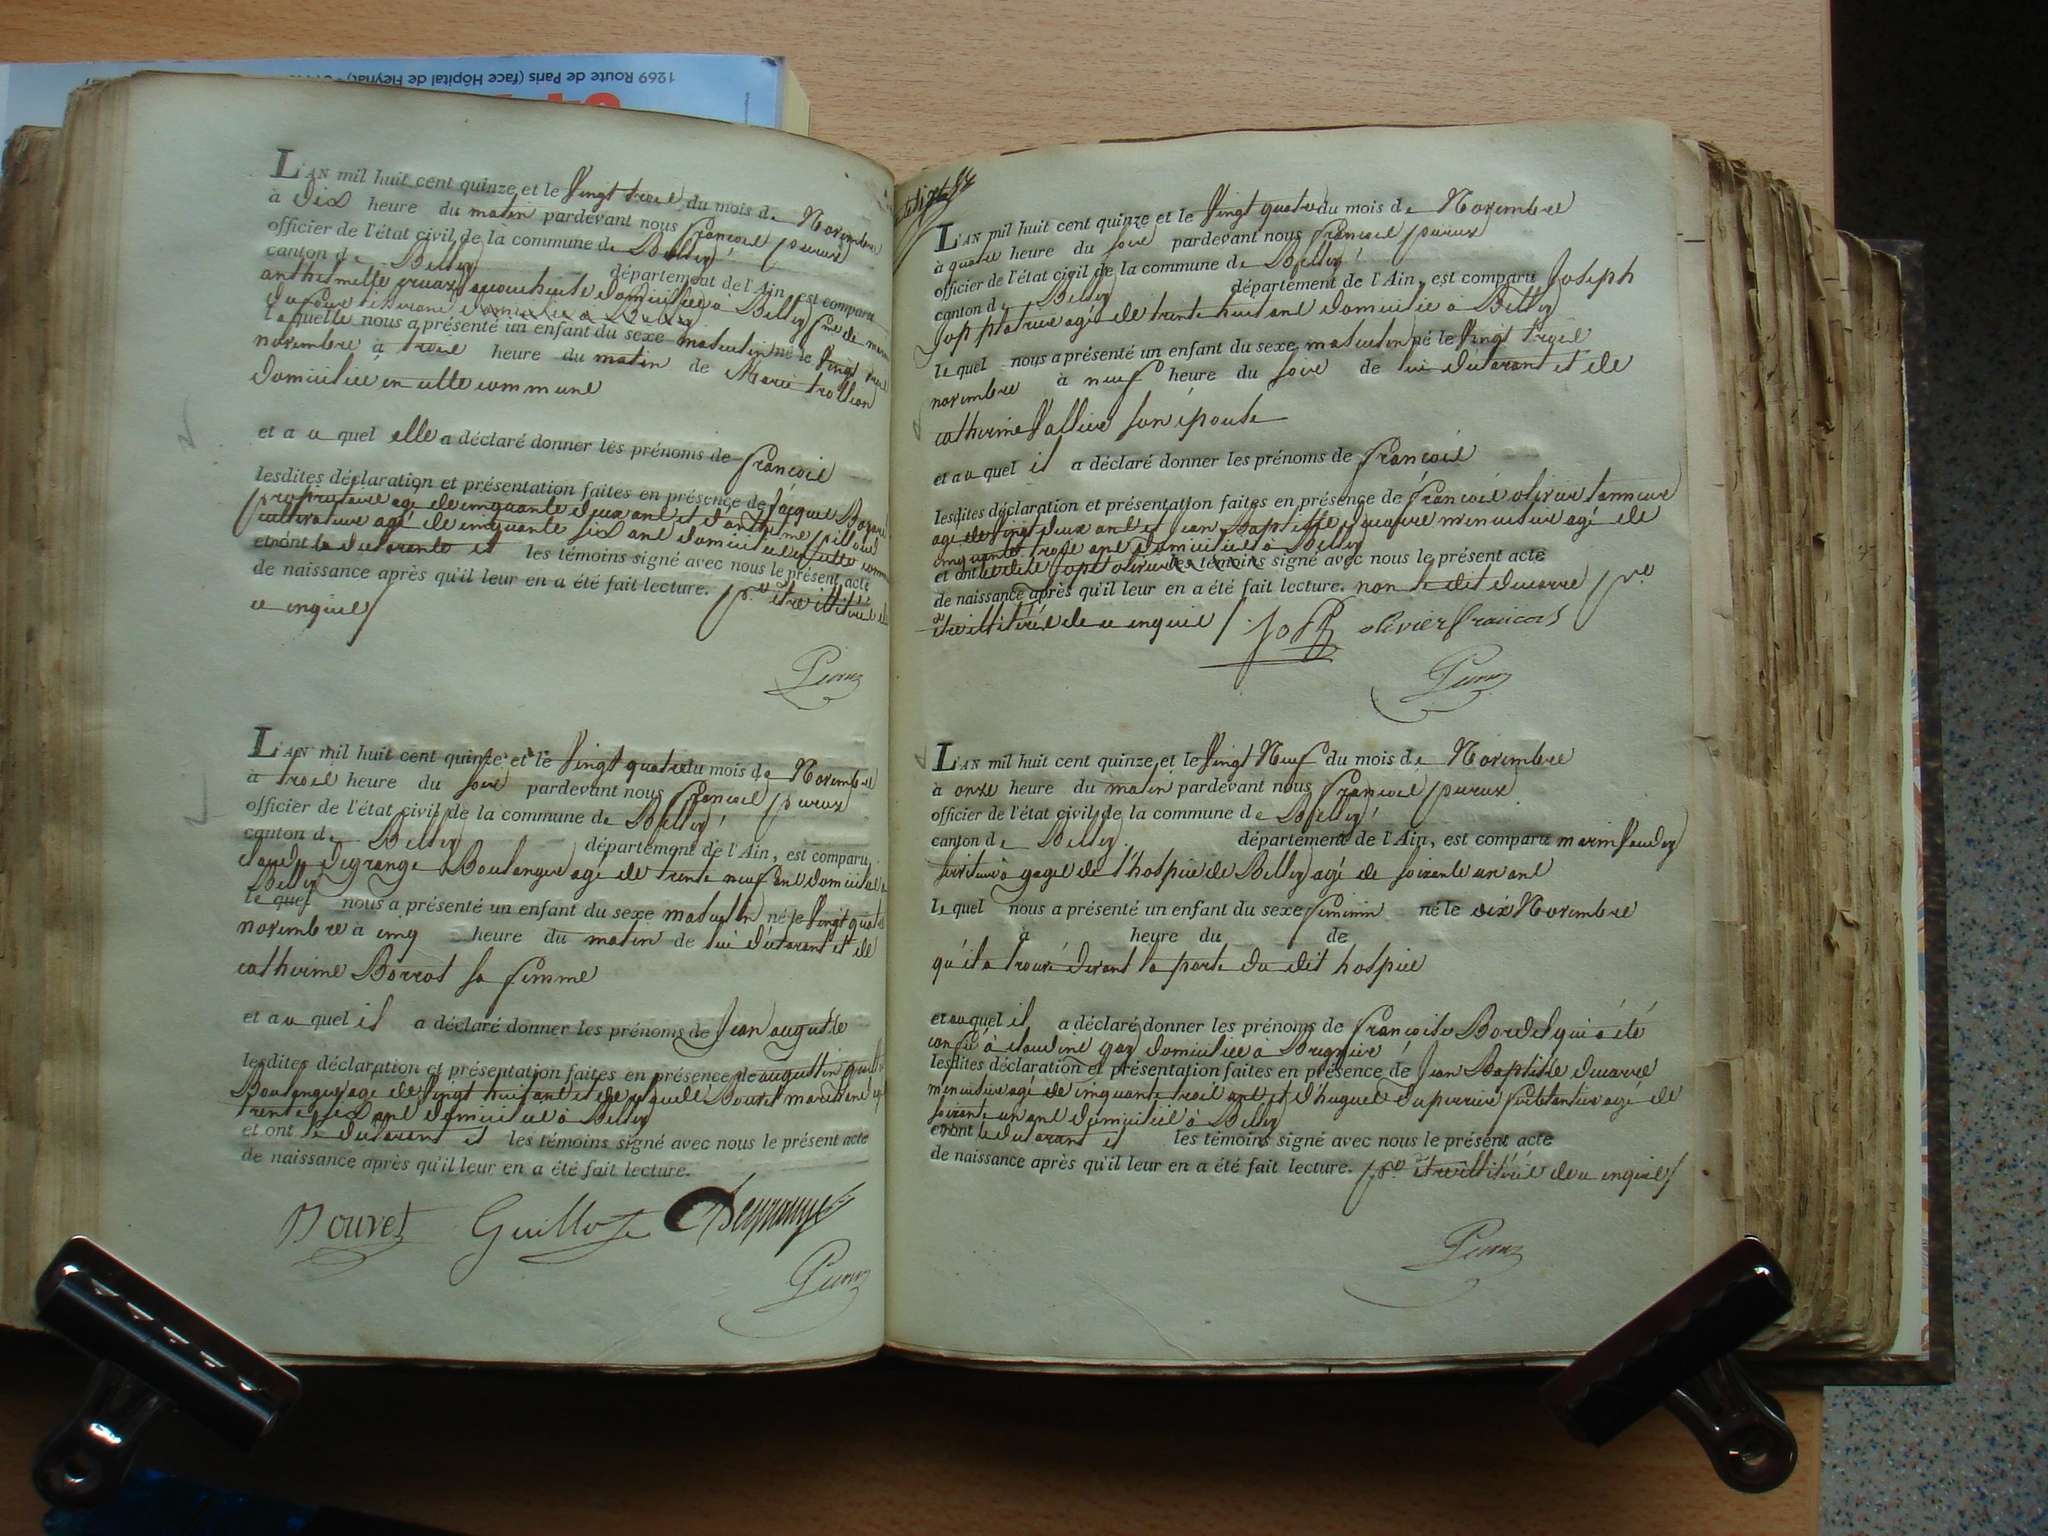 1269 Route de Paris (face Hôpital de Fleyriat)
L'AN mil huit cent quinze et le Vingt trois du mois de Novembre
à Dix heure du matin pardevant nous françois peroux
officier de l'état civil de la commune de Belley
canton de Belley département de l'Ain, est comparu
anthelmette domiciliée à Belley
laquelle nous a présenté un enfant du sexe masculin né le Vingt
novembre à trois heure du matin de Marie trollion
Domiciliée en cette commune
et a u quel elle a déclaré donner les prénoms de françois
lesdites déclaration et présentation faites en présence de Jacque
propriétaire agé de cinquante deux ans et d'anthelme
cultivateur agé de cinquante six ans domiciliés en cette commune
et ont la déclarante et les témoins signé avec nous le présent acte
de naissance après qu'il leur en a été fait lecture. pr. être illitérés de
ce enquis
L'AN mil huit cent quinze et le Vingt quatre du mois de Novembre
à trois heure du soir pardevant nous françois peroux
officier de l'état civil de la commune de Belley
canton de Belley département de l'Ain, est comparu
claude Degrange Boulanger agé de trente neuf ans domicilié à
Belley
le quel nous a présenté un enfant du sexe masculin né le Vingt quatre
novembre à cinq heure du matin de lui déclarant et de
catherine Borrot sa femme
et a u quel il a déclaré donner les prénoms de Jean auguste
lesdites déclaration et présentation faites en présence de augustin
Boulanger agé de Vingt huit ans et de Douvet marchand
trente six ans domiciliés à Belley
et ont le déclarant et les témoins signé avec nous le présent acte
de naissance après qu'il leur en a été fait lecture.
Douvet Guillot Degrange
L'AN mil huit cent quinze et le Vingt quatre du mois de Novembre
à quatre heure du soir pardevant nous françois peroux
officier de l'état civil de la commune de Belley
canton de Belley département de l'Ain, est comparu Joseph
Jopp platrier agé de trente huit ans domicilié à Belley
le quel nous a présenté un enfant du sexe masculin né le Vingt trois
novembre à neuf heure du soir de lui déclarant et de
catherine Vallier son épouse
et a u quel il a déclaré donner les prénoms de françois
lesdites déclaration et présentation faites en présence de françois olivier tanneur
agé de Vingt deux ans et jean Baptiste ducarre menuisier agé de
cinquante trois ans domiciliés à Belley
et ont ledit Jopp olivier les témoins signé avec nous le présent acte
de naissance après qu'il leur en a été fait lecture. non le dit ducarre pr.
être illitéré de ce enquis olivier francois
L'AN mil huit cent quinze et le Vingt Neuf du mois de Novembre
à onze heure du matin pardevant nous françois peroux
officier de l'état civil de la commune de Belley
canton de Belley département de l'Ain, est comparu marin
serviteur à gages de l'hospice de Belley agé de soixante un ans
le quel nous a présenté un enfant du sexe feminin né le dix Novembre
à heure du de
qu'il a trouvé devant la porte du dit hospice
et au quel il a déclaré donner les prénoms de françoise Bordel qui a été
confié à claudine domiciliée à Brognin
lesdites déclaration et présentation faites en présence de Jean Baptiste ducarre
menuisier agé de cinquante trois ans et d'hugues duperrier agé de
soixante un ans domiciliés à Belley
et ont le déclarant et les témoins signé avec nous le présent acte
de naissance après qu'il leur en a été fait lecture. pr. être illitérés de ce enquis